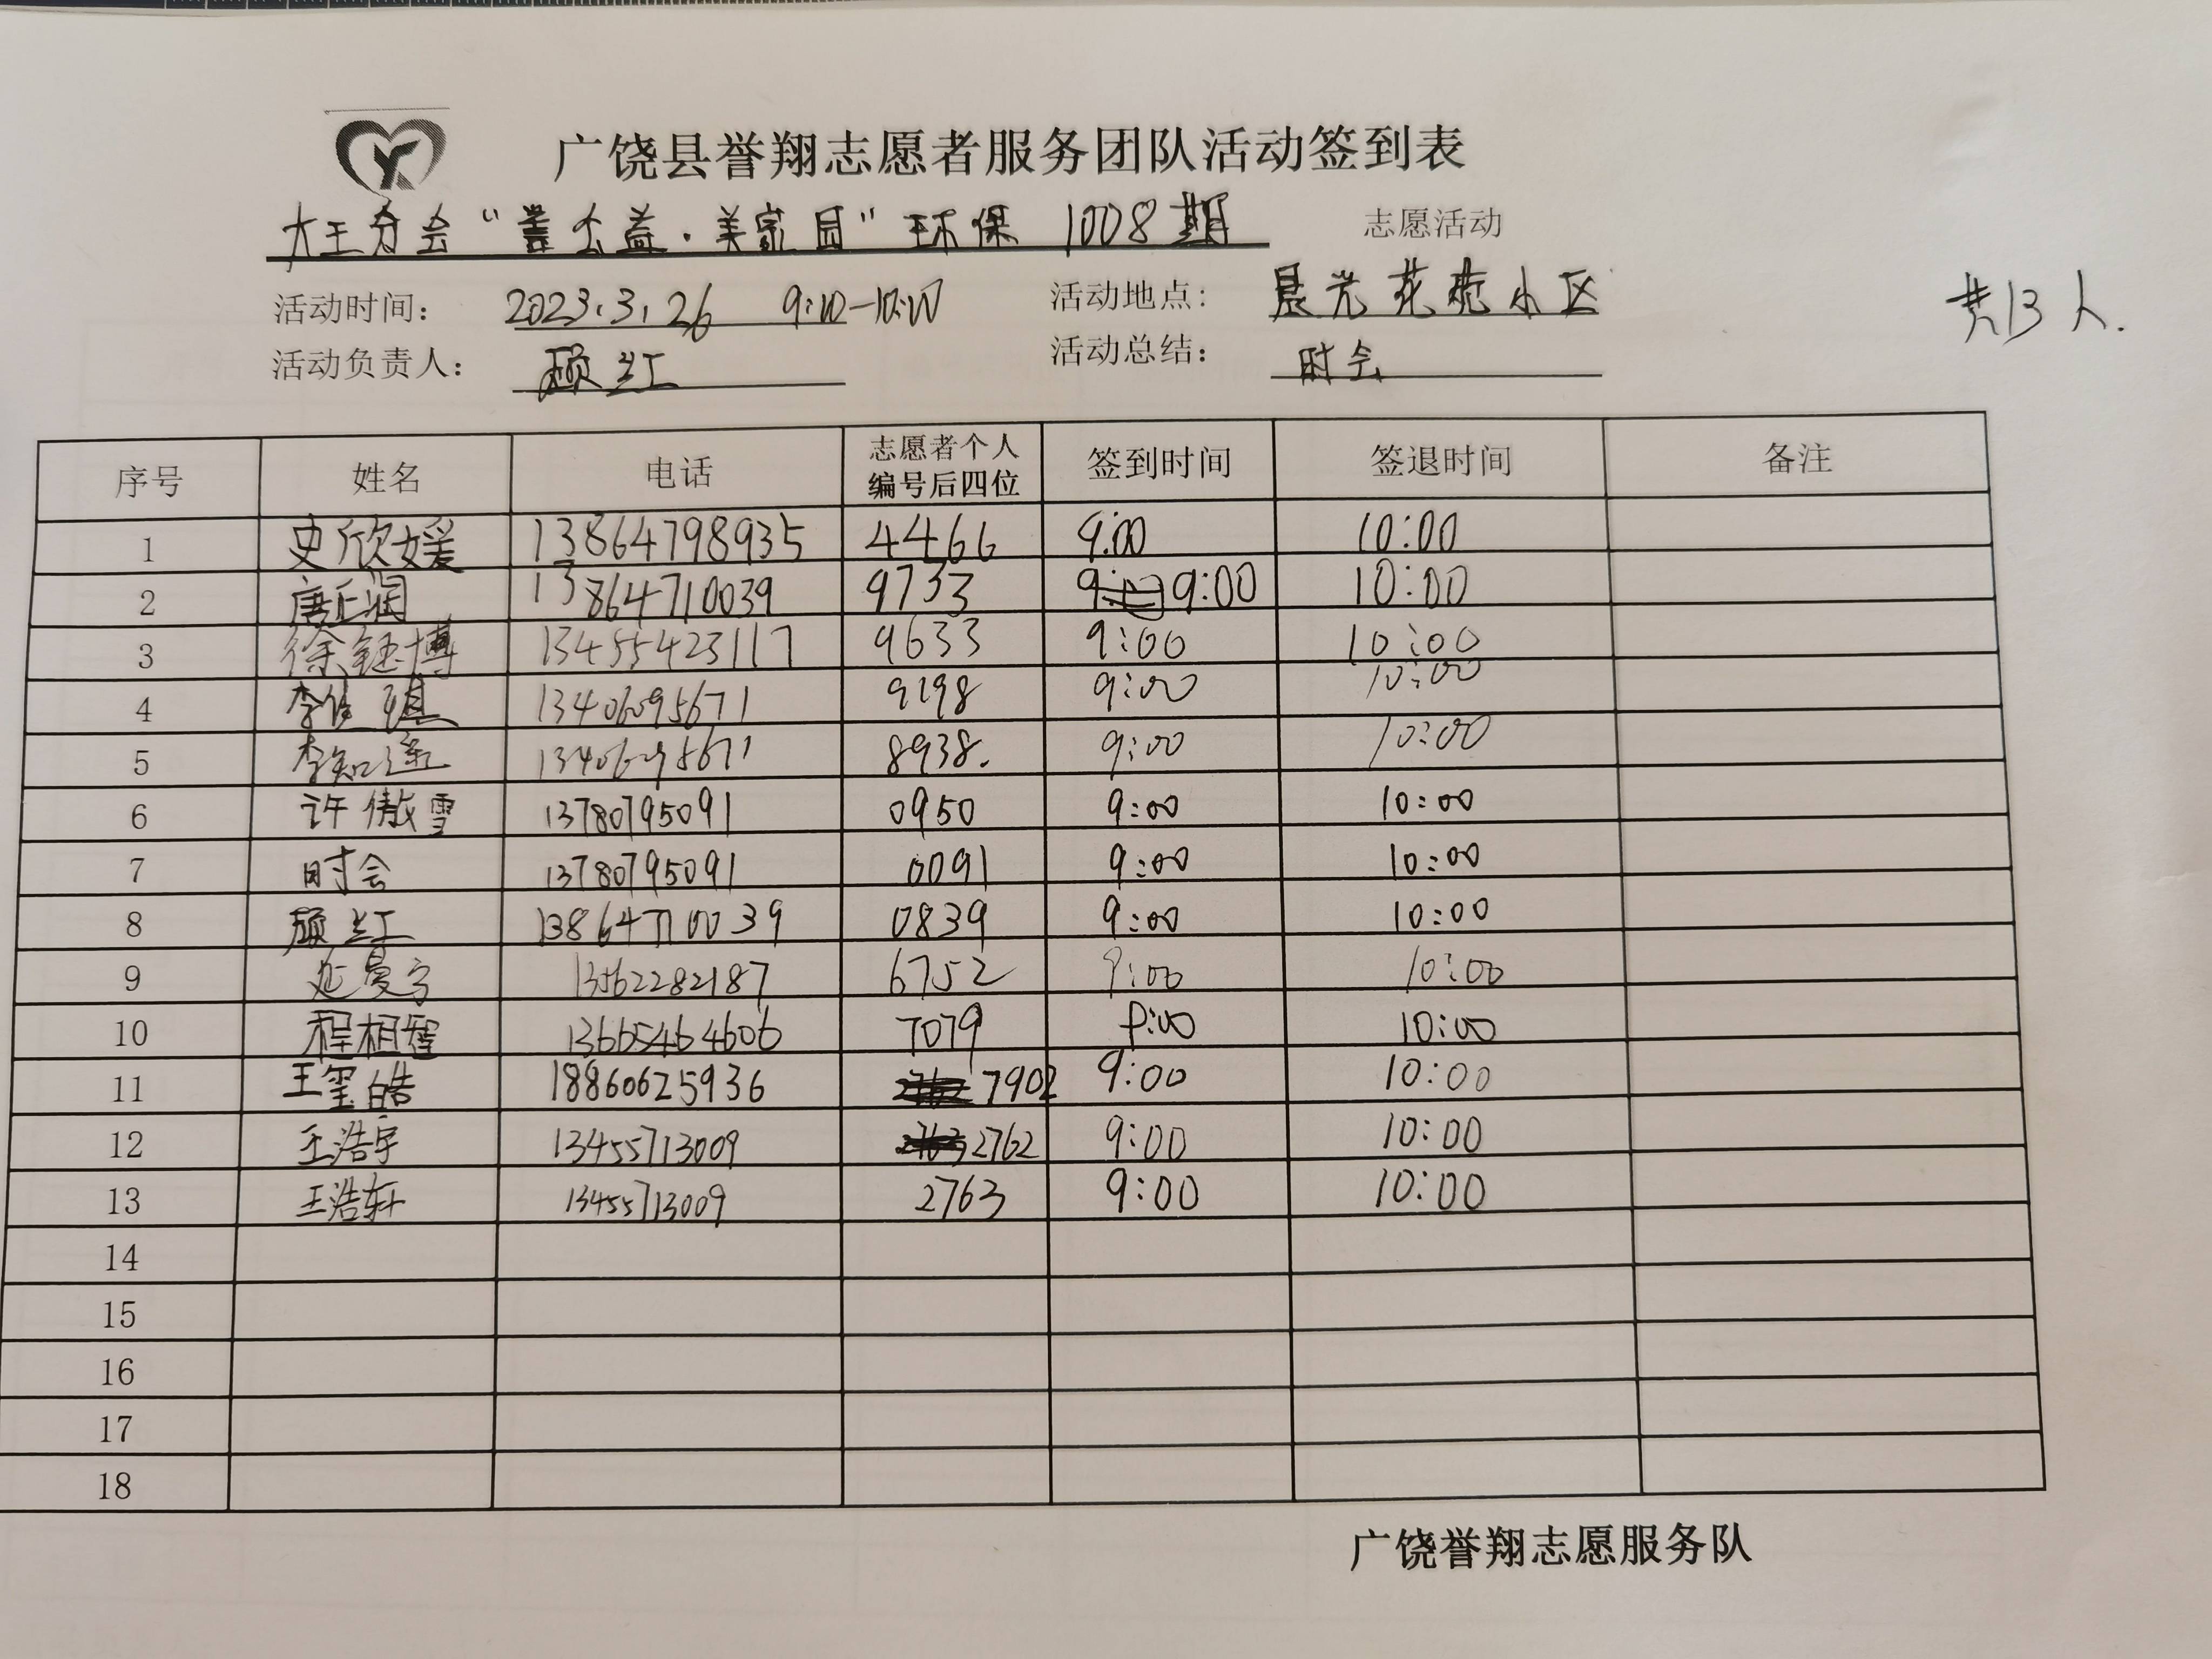 广饶县誉翔志愿者服务团队活动签到表
大王分会“善公益·美家园”环保 1008期 志愿活动
活动时间： 2023.3.26 9:00-10:00 活动地点： 晨光花苑小区
共13人.
活动负责人： 顾红 活动总结： 时会
序号 姓名 电话 志愿者个人编号后四位 签到时间 签退时间 备注
1 史欣媛 13864798935 4466 9:00 10:00
2 唐正润 13864710039 9733 9:00 10:00
3 徐钰博 13455423117 9633 9:00 10:00
4 13406095671 9198 9:00 10:00
5 李知遥 13406095671 8938. 9:00 10:00
6 许傲雪 13780795091 0950 9:00 10:00
7 时会 13780795091 0091 9:00 10:00
8 顾红 13864710039 0839 9:00 10:00
9 延曼宁 13562282187 6752 9:00 10:00
10 程相程 13665464606 7079 9:00 10:00
11 王玺皓 18860625936 7902 9:00 10:00
12 王浩宇 13455713009 2762 9:00 10:00
13 王浩轩 13455713009 2763 9:00 10:00
14
15
16
17
18
广饶誉翔志愿服务队